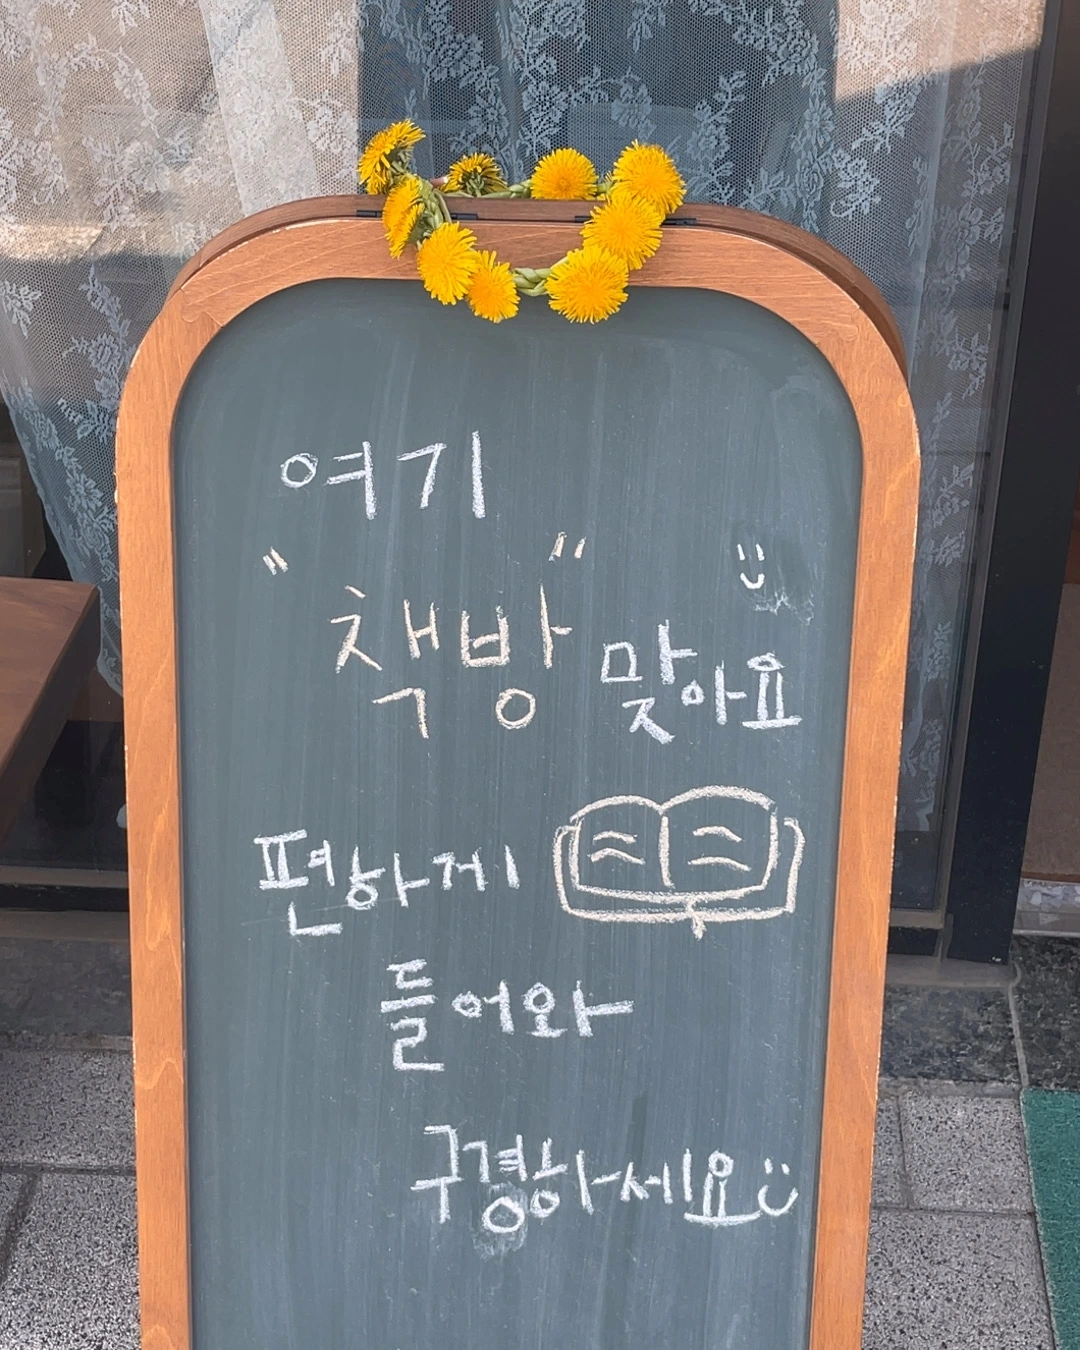 여기
"책방" 맞아요
편하게
들어와
구경하세요